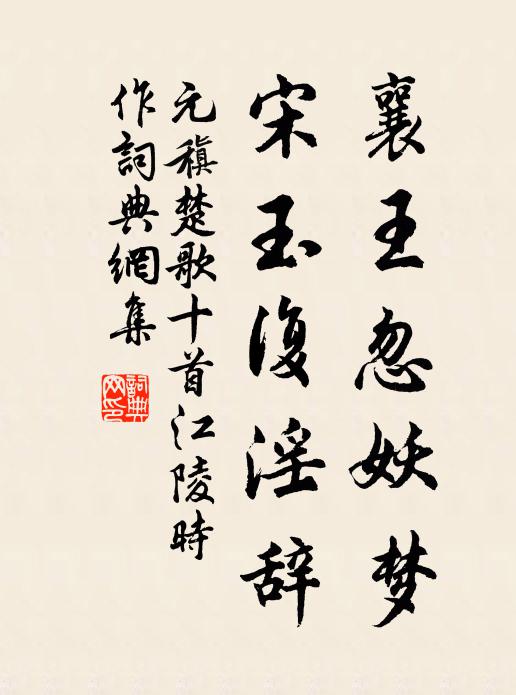 襄王忽妖梦
宋玉復淫辞
元稹楚歌十首江陵時
作詞典網集
詞典網印